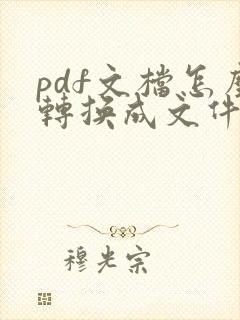 pdf文檔怎麼
轉換成文件
穆光宗